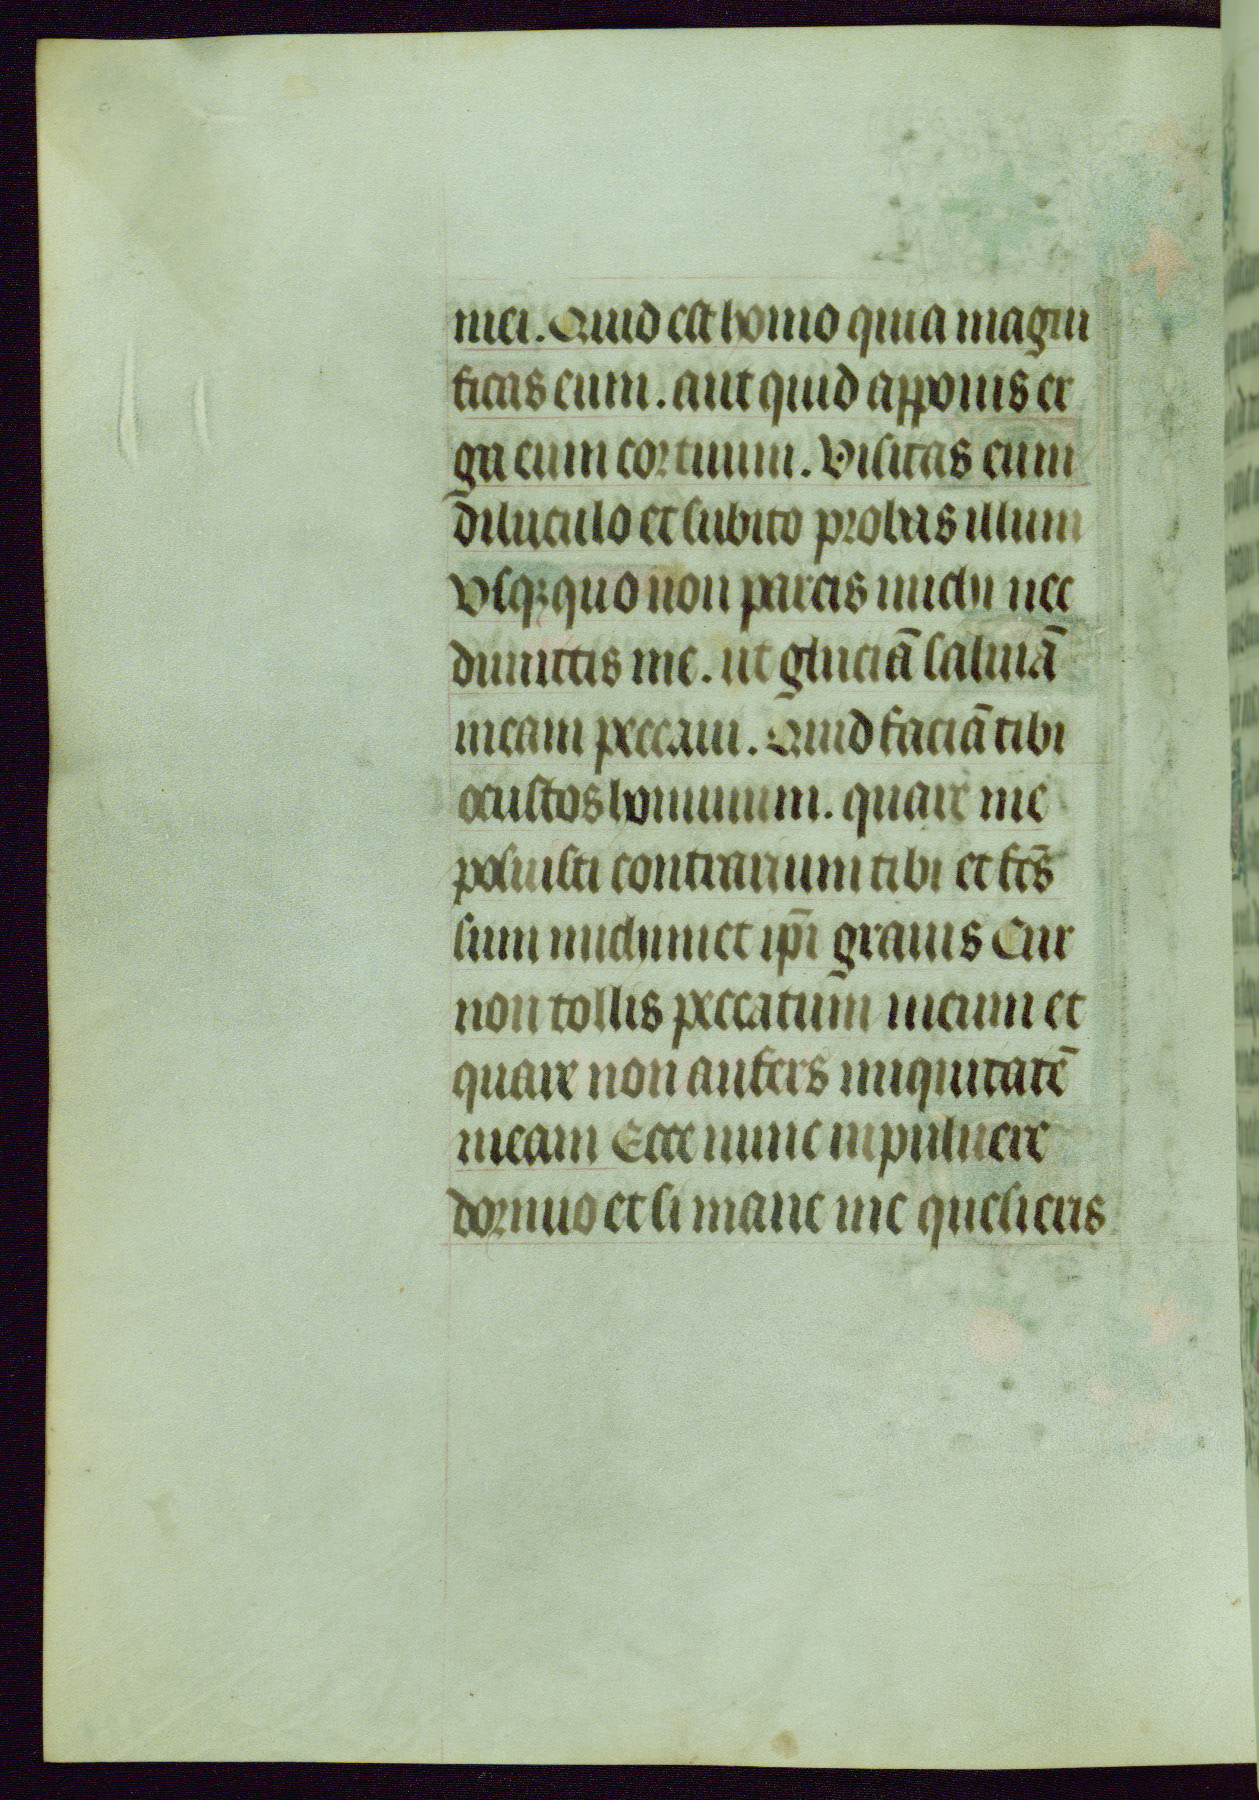 mei. Quid est homo quia magni
ficas eum. aut quid apponis er
ga eum cor tuum. Visitas eum
diluculo et subito probas illum
Usqꝫquo non parcis michi nec
dimittis me. ut gluciā saliuā
meam peccaui. Quid faciā tibi
o custos hominum. quare me
posuisti contrarium tibi et fc̄s
sum michimet ip̄i grauis Cur
non tollis peccatum meum et
quare non aufers iniquitatē
meam Ecce nunc in puluere
dormio et si mane me quesieris